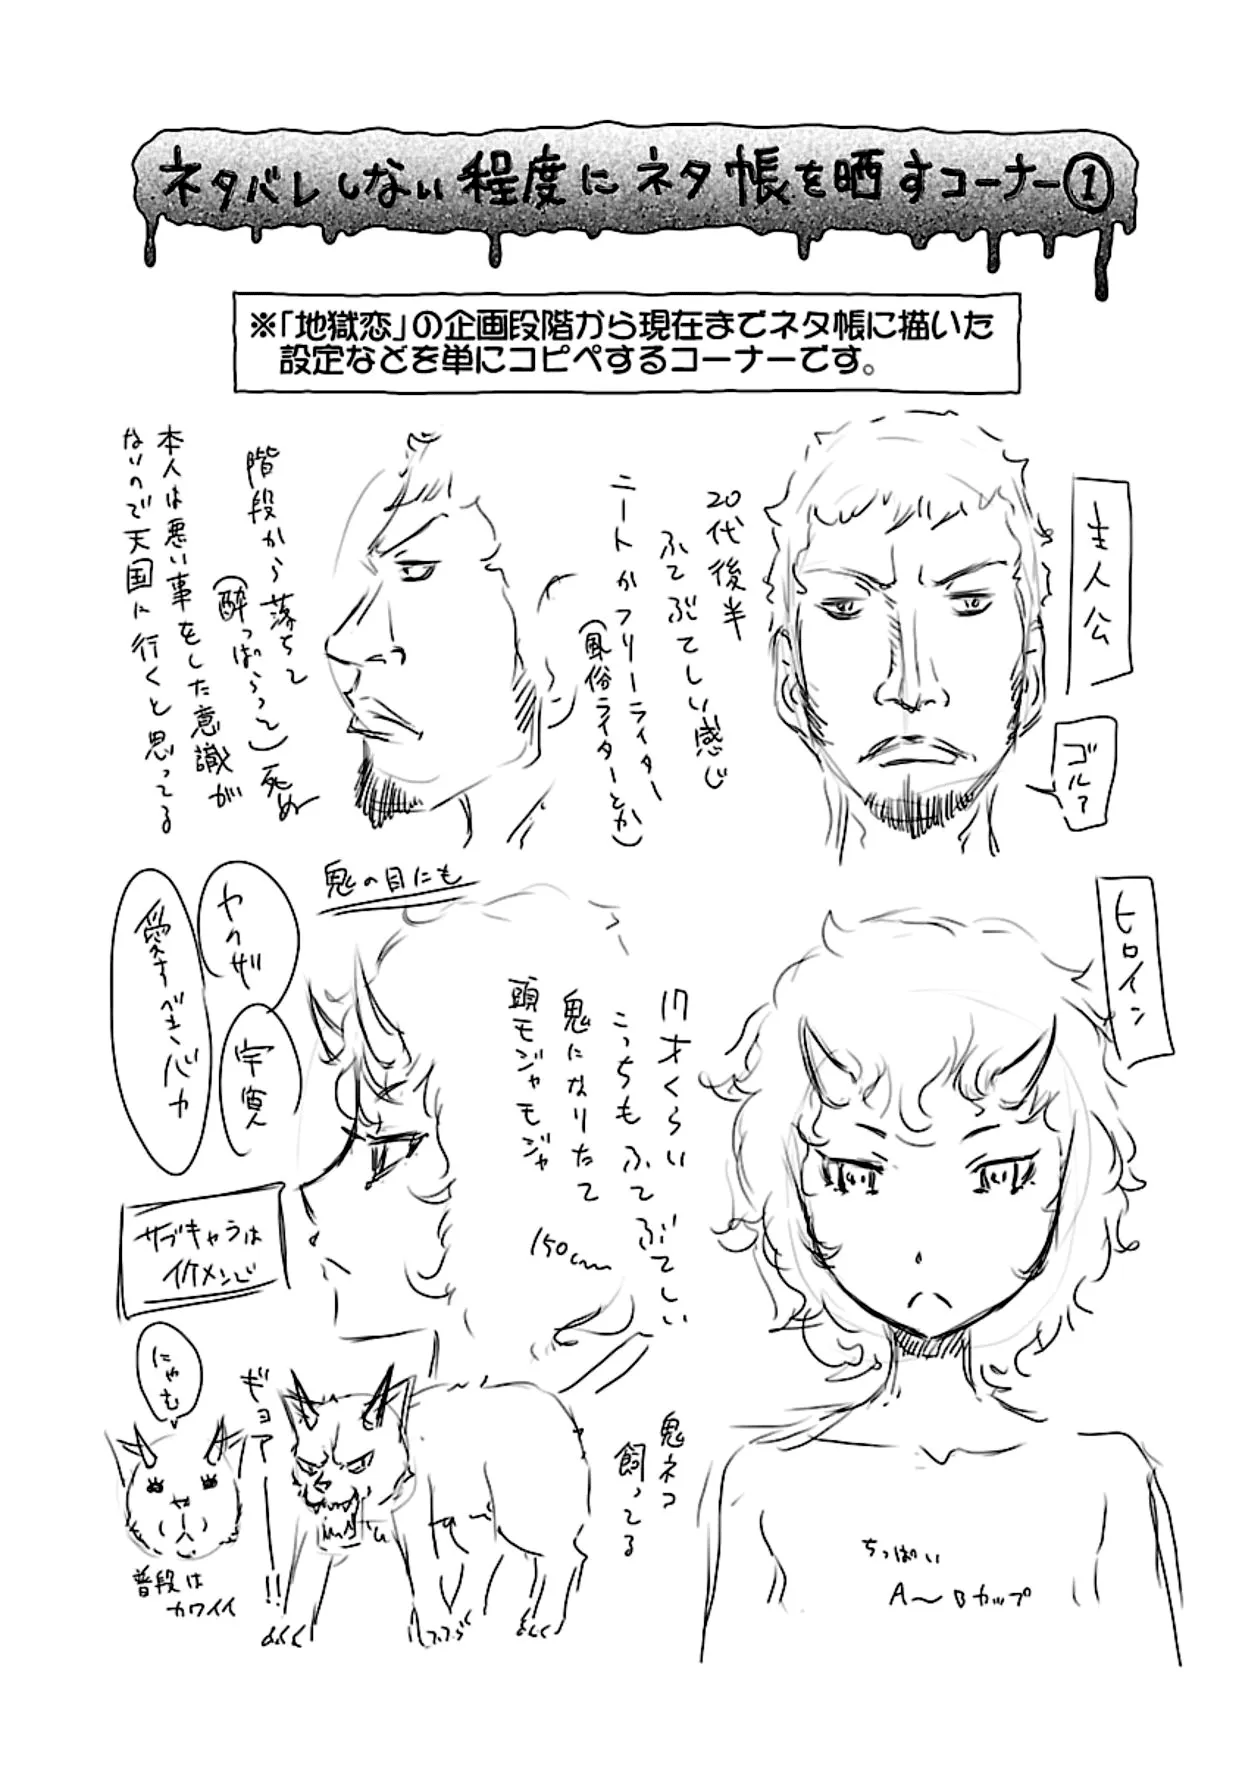 ネタバレしない程度にネタ帳を晒すコーナー①
※「地獄恋」の企画段階から現在までネタ帳に描いた
設定などを単にコピペするコーナーです。
主人公
ゴルァ
20代後半
ふてぶてしい感じ
ニートかフリーライター
(風俗ライターとか)
階段から落ちて
(酔っぱらって)死ぬ
本人は悪い事をした意識が
ないので天国に行くと思ってる
ヒロイン
17才くらい
こっちもふてぶてしい
鬼になりたて
頭モジャモジャ
150cm
鬼の目にも
ヤクザ
愛すべきバカ
サブキャラは
イケメンで
鬼ネコ
飼ってる
ギョアー!!
にゃむ
普段は
カワイイ
ちっぱい
A〜Bカップ